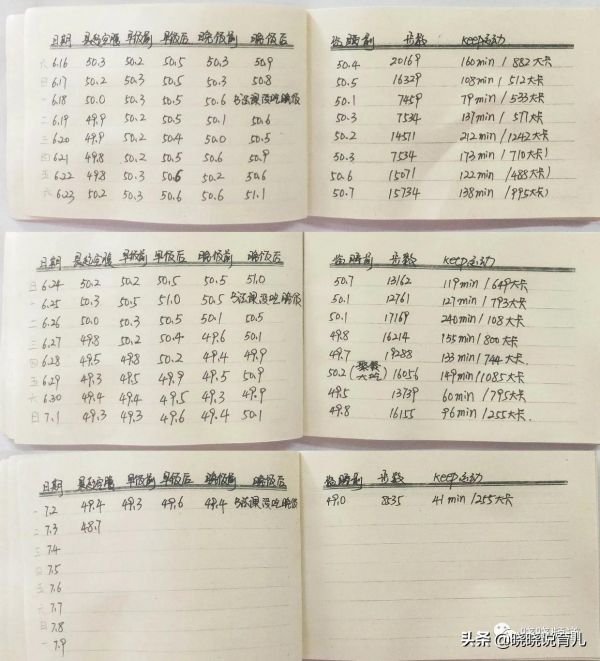 日期 晨起空腹 早饭前 早饭后 晚饭前 晚饭后 临睡前 步数 keep运动
六 6.16 50.3 50.2 50.5 50.3 50.9 50.4 20169 160min / 882大卡
日 6.17 50.2 50.3 50.5 50.3 50.8 50.5 16329 108min / 512大卡
一 6.18 50.0 50.3 50.5 50.6 书法课没吃晚饭 50.1 7459 79min / 533大卡
二 6.19 49.9 50.2 50.5 50.1 50.6 50.3 7534 137min / 571大卡
三 6.20 49.9 50.2 50.4 50.0 50.5 50.2 14571 212min / 1242大卡
四 6.21 49.8 50.2 50.5 50.6 50.9 50.3 7534 173min / 710大卡
五 6.22 49.8 50.3 50.6 50.2 50.6 50.6 15071 122min / 485大卡
六 6.23 50.2 50.3 50.6 50.6 51.1 50.7 15734 138min / 995大卡
日期 晨起空腹 早饭前 早饭后 晚饭前 晚饭后 临睡前 步数 keep运动
日 6.24 50.2 50.2 50.5 50.5 51.0 50.7 13162 119min / 649大卡
一 6.25 50.3 50.5 51.0 50.5 书法课没吃晚饭 50.1 12761 127min / 793大卡
二 6.26 50.0 50.3 50.5 50.1 50.5 50.1 17169 240min / 108大卡
三 6.27 49.8 50.2 50.4 49.6 50.1 49.8 16214 135min / 800大卡
四 6.28 49.5 49.8 50.2 49.4 49.9 49.7 19288 133min / 744大卡
五 6.29 49.3 49.5 49.9 49.5 50.9 50.2(聚餐大吃) 16056 149min / 1085大卡
六 6.30 49.4 49.4 49.5 49.3 49.9 49.5 13739 60min / 795大卡
日 7.1 49.3 49.3 49.6 49.4 50.1 49.8 16155 96min / 255大卡
日期 晨起空腹 早饭前 早饭后 晚饭前 晚饭后 临睡前 步数 keep运动
一 7.2 49.4 49.3 49.6 49.4 书法课没吃晚饭 49.0 8535 41min / 255大卡
二 7.3 48.7
三 7.4
四 7.5
五 7.6
六 7.7
日 7.8
一 7.9
头条 @晓晓说育儿